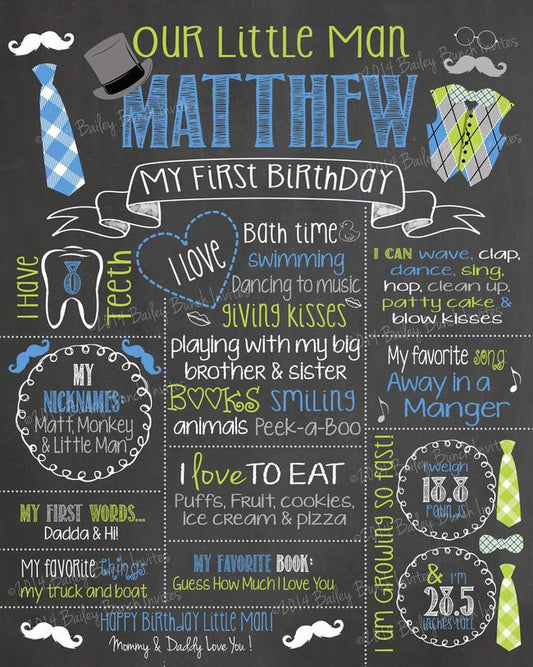 OUR LITTLE MAN
MATTHEW
MY FIRST BIRTHDAY
I HAVE
6
TEETH
I LOVE
Bath time
swimming
Dancing to music
giving kisses
playing with my big
brother & sister
BOOKS smiling
animals Peek-a-Boo
I CAN wave, clap,
dance, sing,
hop, clean up,
patty cake &
blow kisses
My favorite song:
Away in a
Manger
MY
NICKNAMES:
Matt, Monkey
& Little Man
I love TO EAT
Puffs, Fruit, cookies,
ice cream & pizza
MY FIRST WORDS...
Dadda & Hi!
My favorite things
my truck and boat
MY FAVORITE BOOK:
Guess How Much I Love You
I AM GROWING SO FAST!
I weigh
18.8
POUNDS
& I'm
28.5
inches tall
HAPPY BIRTHDAY LITTLE MAN!
Mommy & Daddy Love You!
©2014 Bailey Bunch Invites